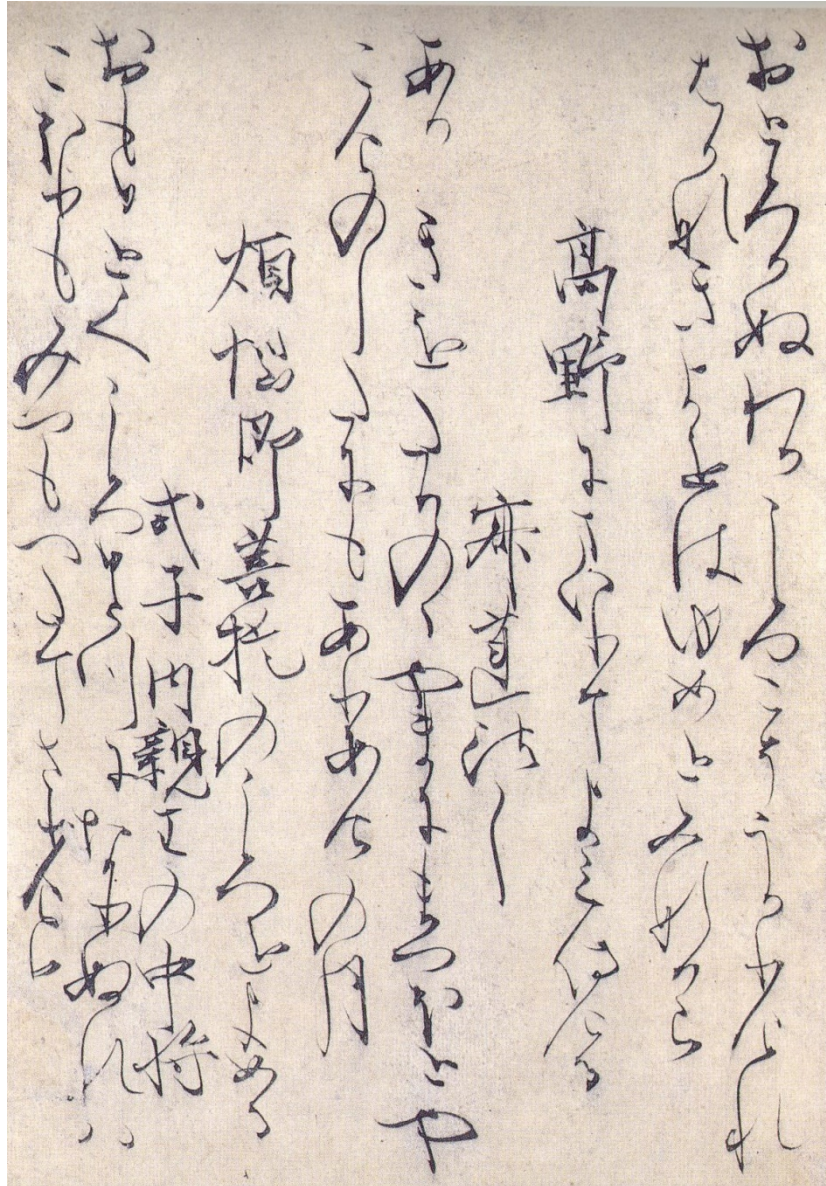 おとろかぬわかこゝろこそうかりけれ
はかなきよをはゆめとみなから
高野にまいりてよみ侍ける
寂蓮法し
あかつきをたかのゝやまにまつほとや
こけのしたにもありあけの月
煩悩即菩提のこゝろをよめる
式子内親王の中将
おもひとくこゝろひとつになりぬれは
こほりもみつもへたてさりけり